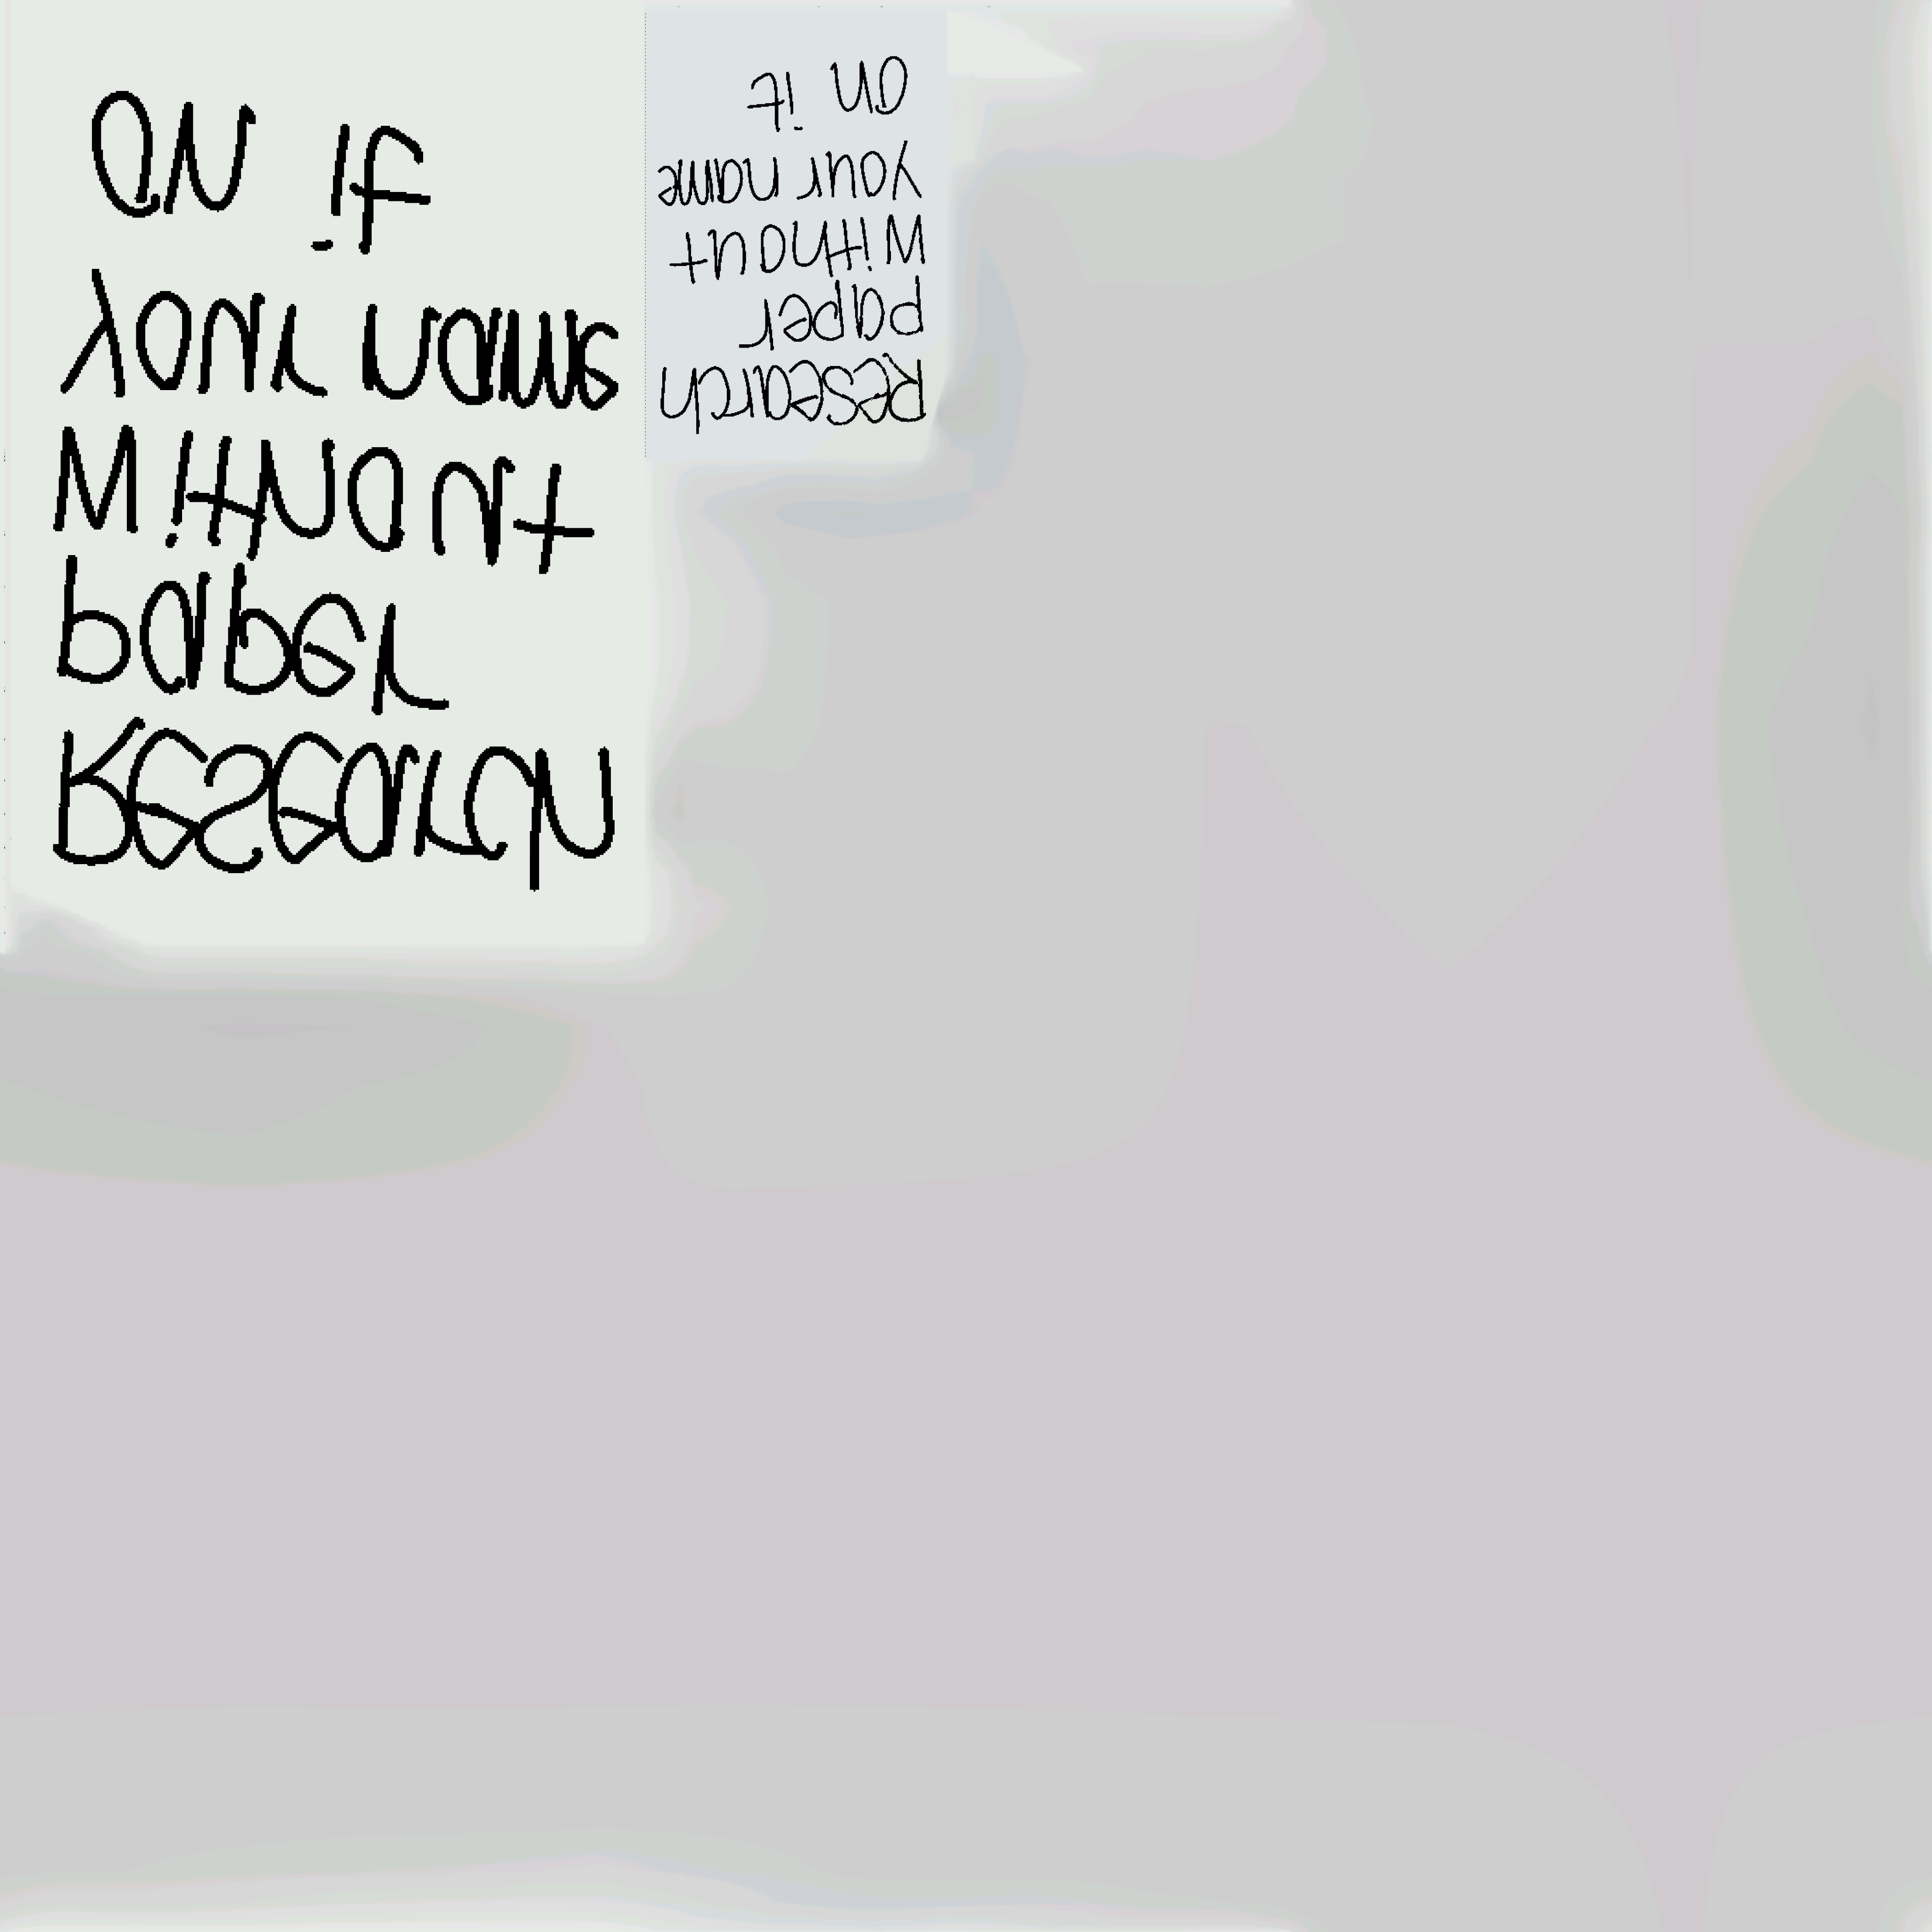 Research
paper
without
your name
on it
Research
paper
without
your name
on it